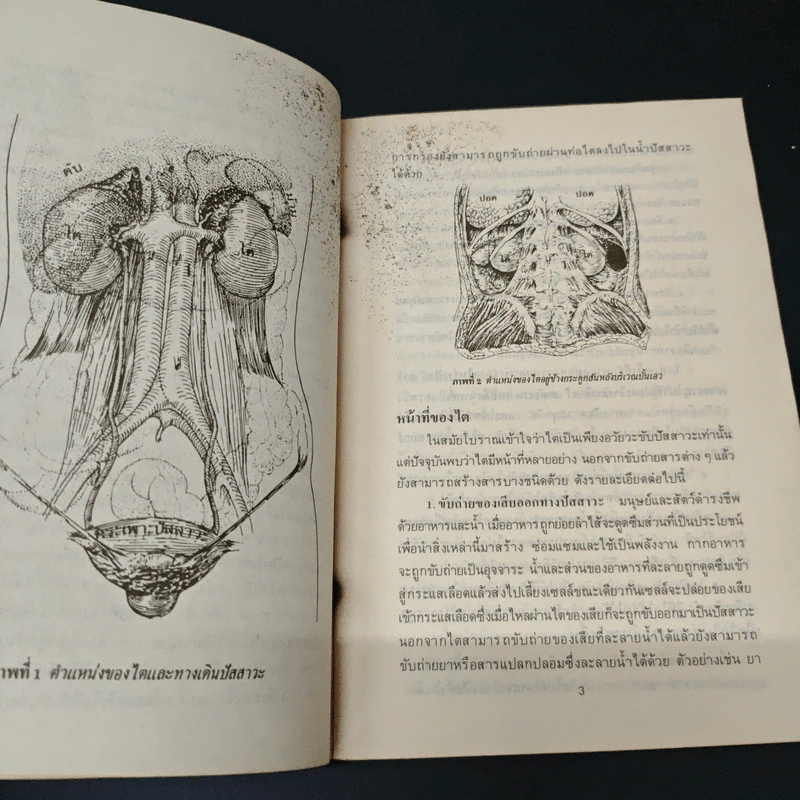 ตับ
ม้าม
ไต
ไต
กระเพาะปัสสาวะ
ภาพที่ 1 ตำแหน่งของไตและทางเดินปัสสาวะ
การกรองยังสามารถถูกขับถ่ายผ่านท่อไตลงไปในน้ำปัสสาวะ
ได้ด้วย
ปอด
ปอด
ไต
ไต
ภาพที่ 2 ตำแหน่งของไตอยู่ข้างกระดูกสันหลังบริเวณบั้นเอว
หน้าที่ของไต
ในสมัยโบราณเข้าใจว่าไตเป็นเพียงอวัยวะขับปัสสาวะเท่านั้น
แต่ปัจจุบันพบว่าไตมีหน้าที่หลายอย่าง นอกจากขับถ่ายสารต่าง ๆ แล้ว
ยังสามารถสร้างสารบางชนิดด้วย ดังรายละเอียดต่อไปนี้
1. ขับถ่ายของเสียออกทางปัสสาวะ มนุษย์และสัตว์ดำรงชีพ
ด้วยอาหารและน้ำ เมื่ออาหารถูกย่อยลำไส้จะดูดซึมส่วนที่เป็นประโยชน์
เพื่อนำสิ่งเหล่านี้มาสร้าง ซ่อมแซมและใช้เป็นพลังงาน กากอาหาร
จะถูกขับถ่ายเป็นอุจจาระ น้ำและส่วนของอาหารที่ละลายถูกดูดซึมเข้า
สู่กระแสเลือดแล้วส่งไปเลี้ยงเซลล์ขณะเดียวกันเซลล์จะปล่อยของเสีย
เข้ากระแสเลือดซึ่งเมื่อไหลผ่านไตของเสียก็จะถูกขับออกมาเป็นปัสสาวะ
นอกจากไตสามารถขับถ่ายของเสียที่ละลายน้ำได้แล้วยังสามารถ
ขับถ่ายยาหรือสารแปลกปลอมซึ่งละลายน้ำได้ด้วย ตัวอย่างเช่น ยา
3